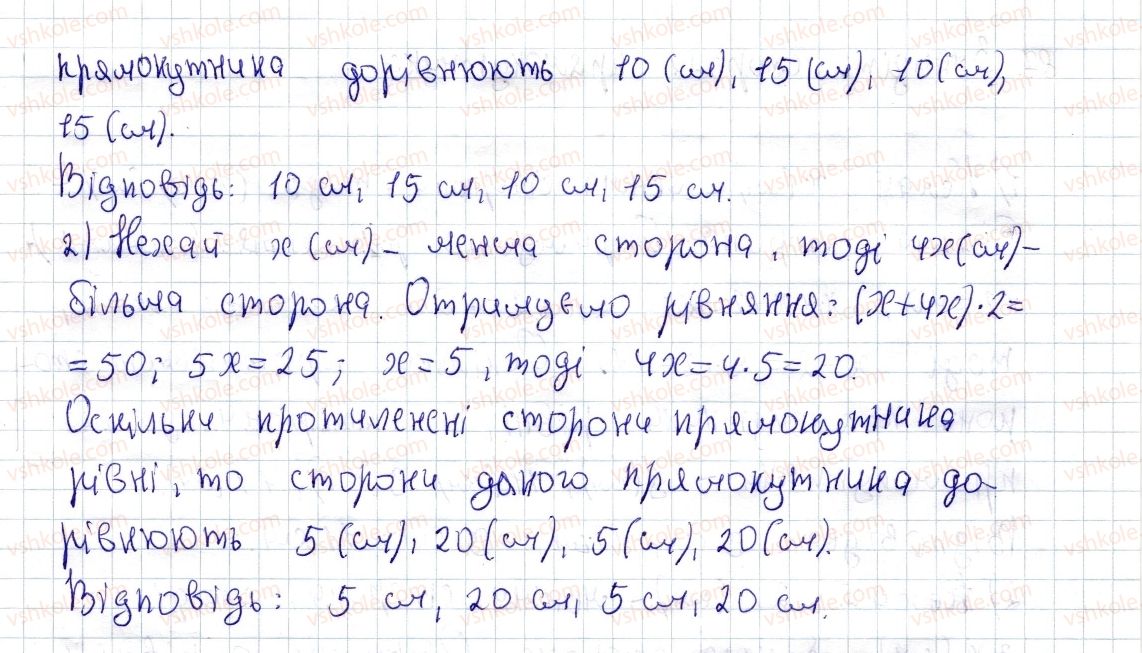 прямокутника дорівнюють 10 (см), 15 (см), 10 (см),
15 (см).
Відповідь: 10 см, 15 см, 10 см, 15 см.
2) Нехай x (см) – менша сторона, тоді 4x (см) –
більша сторона. Отримуємо рівняння: (x+4x)·2=
=50; 5x=25; x=5, тоді 4x=4·5=20.
Оскільки протилежні сторони прямокутника
рівні, то сторони даного прямокутника до-
рівнюють 5 (см), 20 (см), 5 (см), 20 (см).
Відповідь: 5 см, 20 см, 5 см, 20 см.